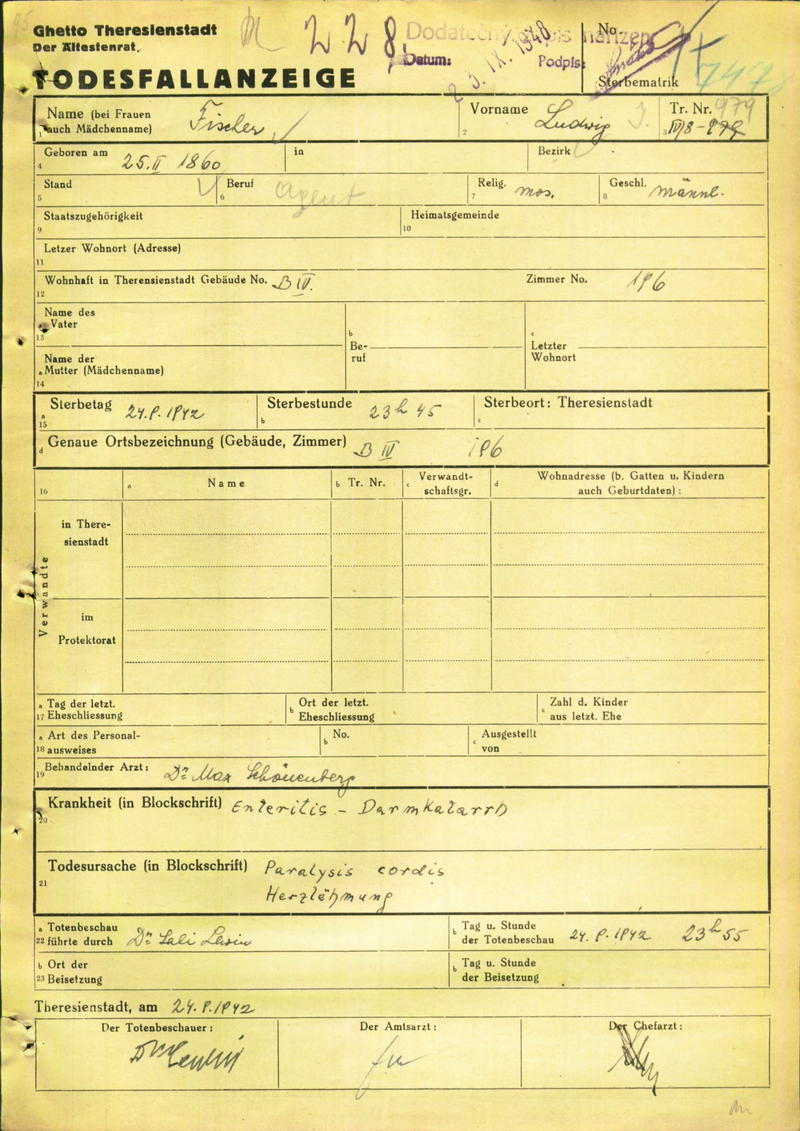 Ghetto Theresienstadt
Der Ältestenrat.
TODESFALLANZEIGE
228
Datum:
Podpis:
No.
Sterbematrik
Name (bei Frauen auch Mädchenname) Fischer
Vorname Ludwig
Tr. Nr. 979
Geboren am 25.II 1860
in
Bezirk
Stand
Beruf Agent
Relig. mos.
Geschl. männl.
Staatszugehörigkeit
Heimatsgemeinde
Letzer Wohnort (Adresse)
Wohnhaft in Therensienstadt Gebäude No. B IV.
Zimmer No. 196
Name des Vater
Beruf
Letzter Wohnort
Name der Mutter (Mädchenname)
Sterbetag 24.9.1942
Sterbestunde 23h 45
Sterbeort: Theresienstadt
Genaue Ortsbezeichnung (Gebäude, Zimmer) B IV 196
Name
Tr. Nr.
Verwandtschaftsgr.
Wohnadresse (b. Gatten u. Kindern auch Geburtdaten) :
Verwandte
in Theresienstadt
im Protektorat
Tag der letzt. Eheschliessung
Ort der letzt. Eheschliessung
Zahl d. Kinder aus letzt. Ehe
Art des Personalausweises
No.
Ausgestellt von
Behandelnder Arzt: Dr. Max Schönenberg
Krankheit (in Blockschrift) Enteritis - Darmkatarrh
Todesursache (in Blockschrift) Paralysis cordis
Herzlähmung
Totenbeschau führte durch Dr.
Tag u. Stunde der Totenbeschau 24.9.1942 23h55
Ort der Beisetzung
Tag u. Stunde der Beisetzung
Theresienstadt, am 24.9.1942
Der Totenbeschauer:
Der Amtsarzt:
Der Chefarzt: